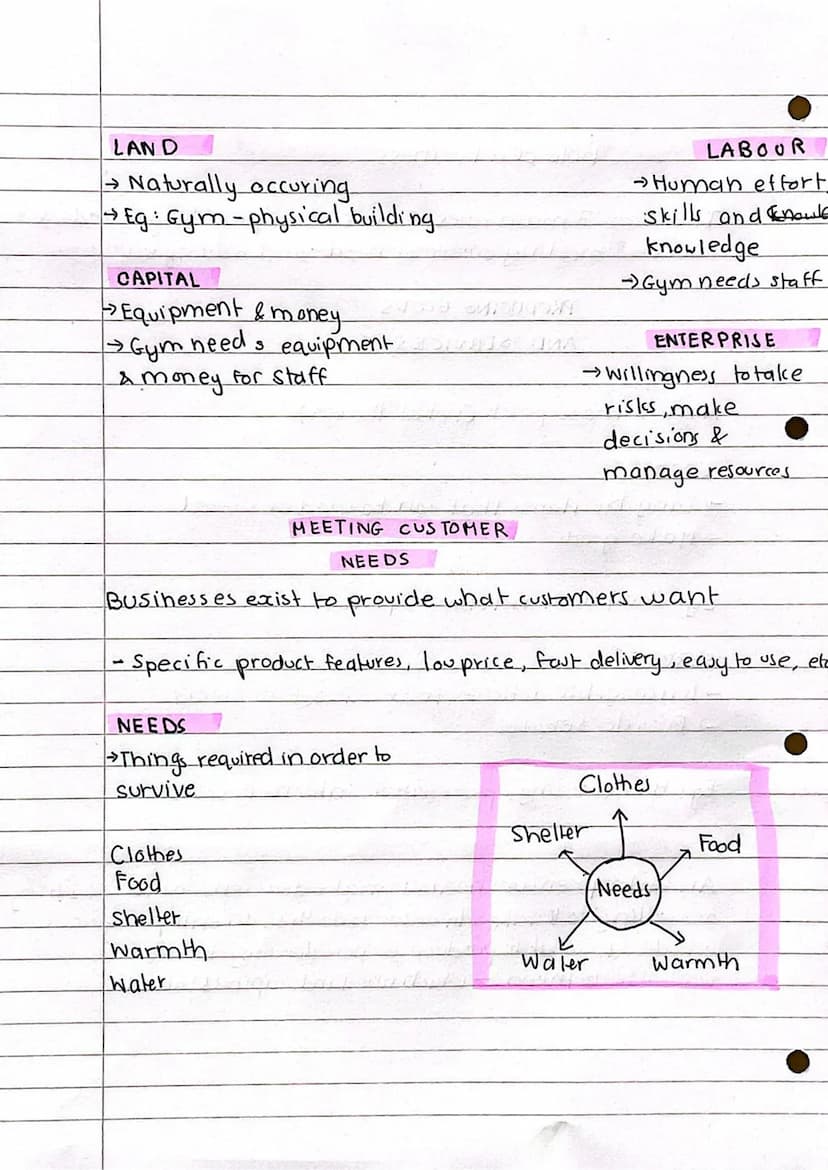 LAND
→ Naturally occuring
→ Eg: Gym - physical building
CAPITAL
→ Equipment & money
→ Gym needs equipment
& money for staff
LABOUR
→ Human effort
skills and
knowledge
→ Gym needs staff
ENTERPRISE
→ Willingness to take
risks, make
decisions &
manage resources
MEETING CUSTOMER
NEEDS
Businesses exist to provide what customers want
- Specific product features, low price, fast delivery, easy to use, etc
NEEDS
→ Things required in order to
survive
Clothes
Food
Shelter
Warmth
Water
Clothes
Shelter
Food
Needs
Water
Warmth